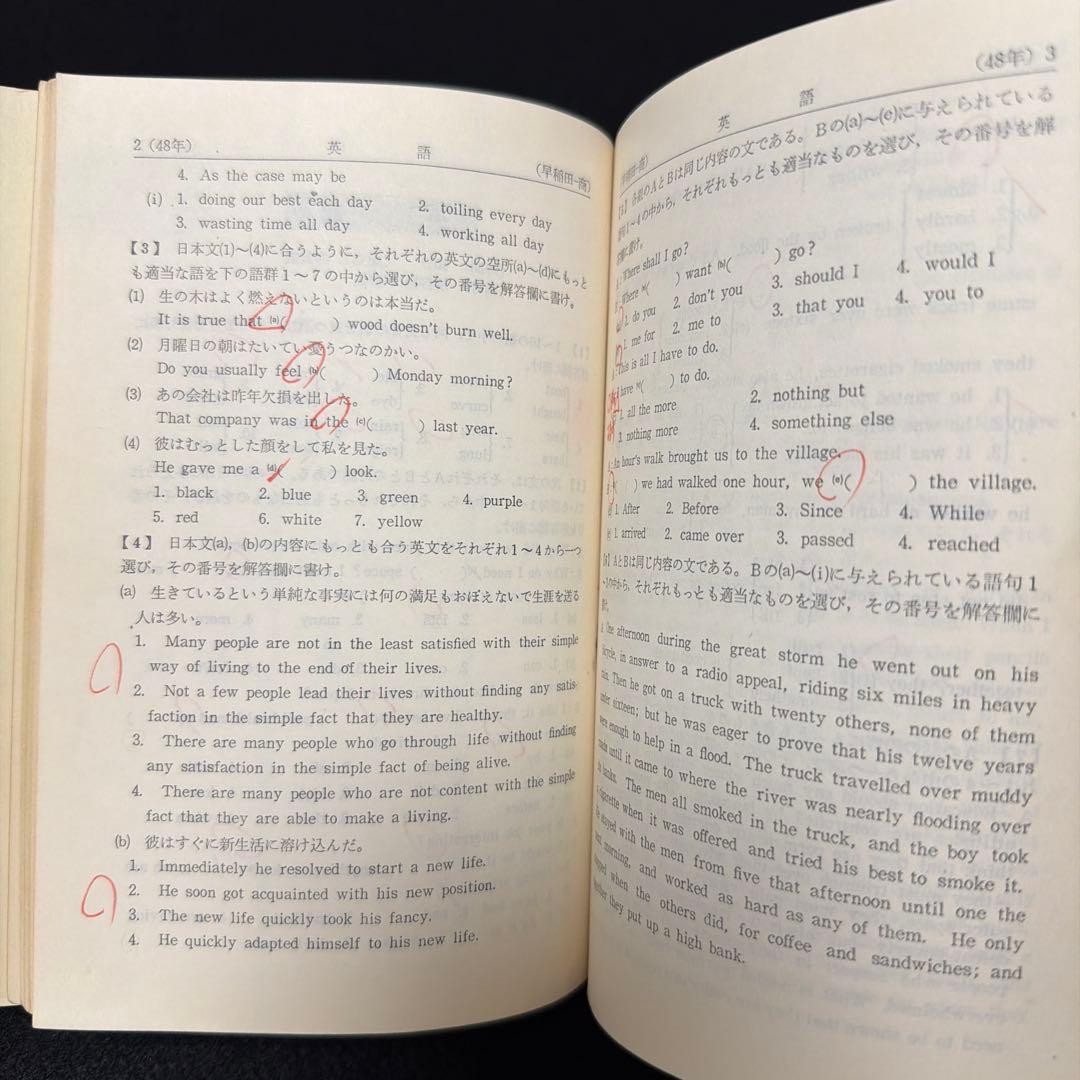 2 (48年)
英語
(早稲田—商)
4. As the case may be
(i) 1. doing our best each day 2. toiling every day
3. wasting time all day 4. working all day
【3】 日本文(1)〜(4)に合うように，それぞれの英文の空所(a)〜(d)にもっと
も適当な語を下の語群1〜7の中から選び，その番号を解答欄に書け。
(1) 生の木はよく燃えないというのは本当だ。
It is true that (a)( ) wood doesn't burn well.
(2) 月曜日の朝はたいてい憂うつなのかい。
Do you usually feel (b)( ) Monday morning?
(3) あの会社は昨年欠損を出した。
That company was in the (c)( ) last year.
(4) 彼はむっとした顔をして私を見た。
He gave me a (d)( ) look.
1. black 2. blue 3. green 4. purple
5. red 6. white 7. yellow
【4】 日本文(a), (b)の内容にもっとも合う英文をそれぞれ1〜4から一つ
選び，その番号を解答欄に書け。
(a) 生きているという単純な事実には何の満足もおぼえないで生涯を送る
人は多い。
1. Many people are not in the least satisfied with their simple
way of living to the end of their lives.
2. Not a few people lead their lives without finding any satis-
faction in the simple fact that they are healthy.
3. There are many people who go through life without finding
any satisfaction in the simple fact of being alive.
4. There are many people who are not content with the simple
fact that they are able to make a living.
(b) 彼はすぐに新生活に溶け込んだ。
1. Immediately he resolved to start a new life.
2. He soon got acquainted with his new position.
3. The new life quickly took his fancy.
4. He quickly adapted himself to his new life.
(48年) 3
英語
(早稲田—商)
【5】 各組のAとBは同じ内容の文である。Bの(a)〜(e)に与えられている
語句1〜4の中から，それぞれもっとも適当なものを選び，その番号を解
答欄に書け。
Where shall I go?
Where (a)( ) want (b)( ) go?
1. do you 2. don't you 3. should I 4. would I
1. me for 2. me to 3. that you 4. you to
This is all I have to do.
I have ( ) to do.
1. all the more 2. nothing but
3. nothing more 4. something else
An hour's walk brought us to the village.
( ) we had walked one hour, we (e)( ) the village.
1. After 2. Before 3. Since 4. While
1. arrived 2. came over 3. passed 4. reached
【6】 AとBは同じ内容の文である。Bの(a)〜(i)に与えられている語句1
〜4の中から，それぞれもっとも適当なものを選び，その番号を解答欄に
One afternoon during the great storm he went out on his
bicycle, in answer to a radio appeal, riding six miles in heavy
rain. Then he got on a truck with twenty others, none of them
under sixteen; but he was eager to prove that his twelve years
were enough to help in a flood. The truck travelled over muddy
roads until it came to where the river was nearly flooding over
its banks. The men all smoked in the truck, and the boy took
a cigarette when it was offered and tried his best to smoke it.
He stayed with the men from five that afternoon until one the
next morning, and worked as hard as any of them. He only
stopped when the others did, for coffee and sandwiches; and
together they put up a high bank.